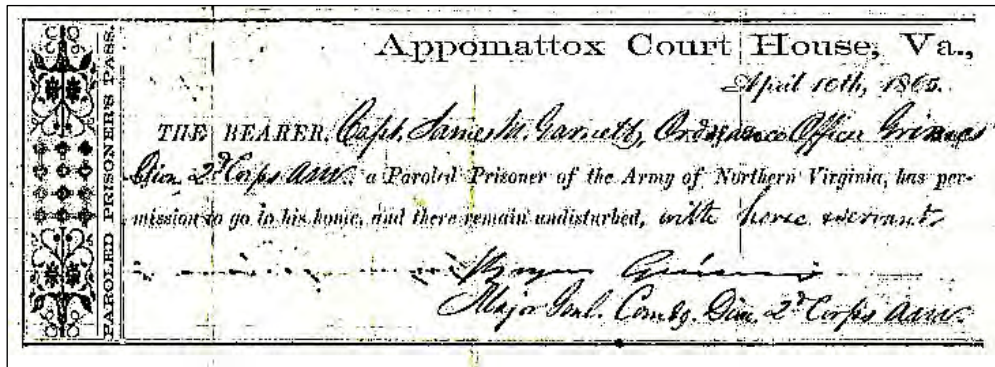 PAROLED PRISONER'S PASS.
Appomattox Court House, Va.,
April 10th, 1865.
THE BEARER, Capt. James M. Garnett, Ordnance Officer Grimes'
Div. 2d Corps ANV. a Paroled Prisoner of the Army of Northern Virginia, has per-
mission to go to his home, and there remain undisturbed, with horse & servant
Bryan Grimes
Major Genl. Comdg. Div. 2d Corps ANV.